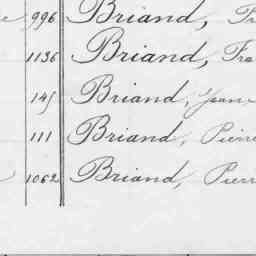 996 Briand,
1136 Briand, Fra
145 Briand, Jean
111 Briand, Pierr
1062 Briand, Pierr